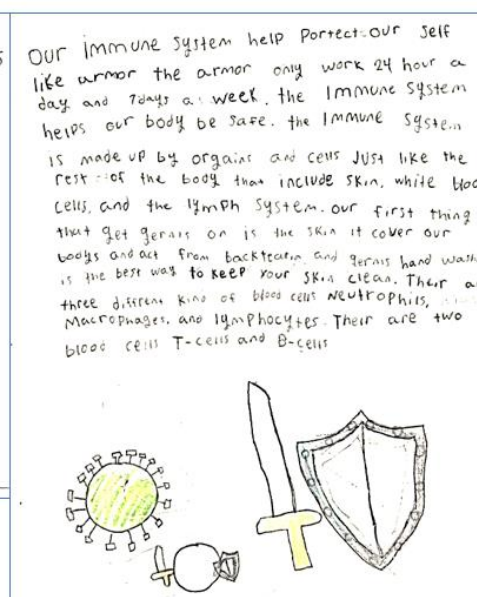 Our immune system help Portect our self
like armor the armor only work 24 hour a
day and 7days a week. the Immune system
helps our body be safe. the Immune system
is made up by orgains and cells Just like the
rest of the body that include skin, white bloo
cells, and the lymph system. our first thing
that get germs on is the skin it cover our
bodys and act from backtearia and germs hand wash
is the best way to keep your skin clean. Their a
three different kind of blood cells Neutrophils,
Macrophages, and lymphocytes. Their are two
blood cells T-cells and B-cells